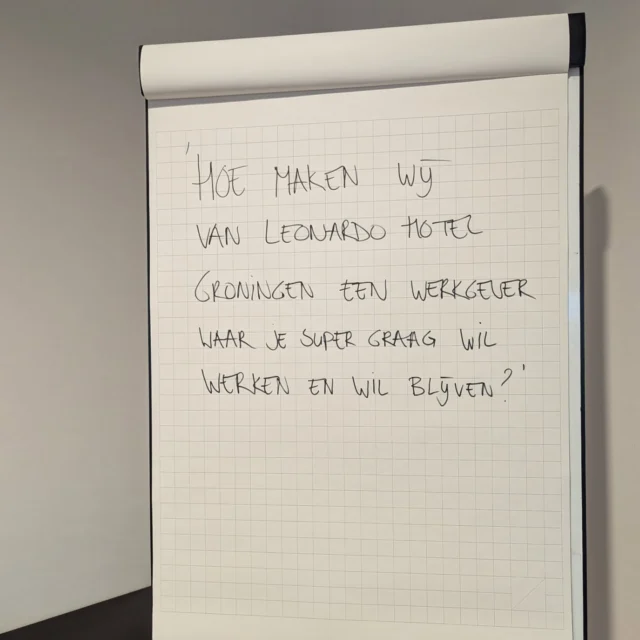 'HOE MAKEN WIJ
VAN LEONARDO HOTEL
GRONINGEN EEN WERKGEVER
WAAR JE SUPER GRAAG WIL
WERKEN EN WIL BLIJVEN?'